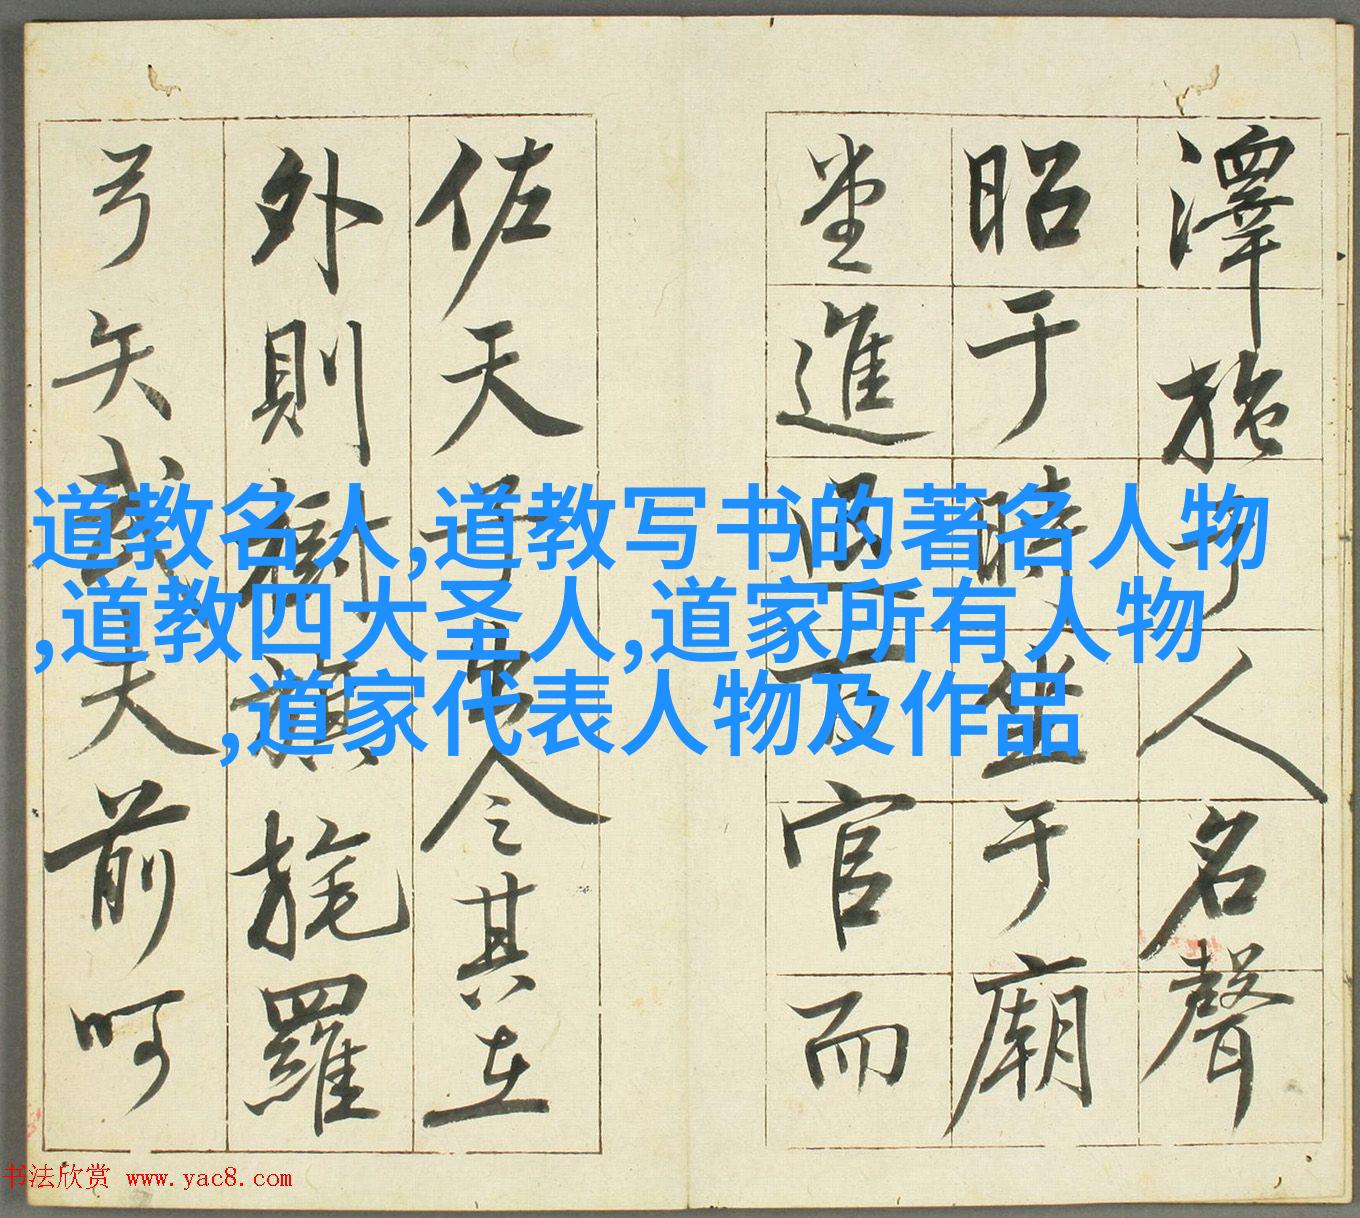 澤施于人名聲
昭于時坐于廟
堂進退百官而
佐天子出令其在
外則樹旗旄羅
弓矢武夫前呵
道教名人,道教写书的著名人物
,道教四大圣人,道家所有人物
,道家代表人物及作品
书法欣赏 www.yac8.com